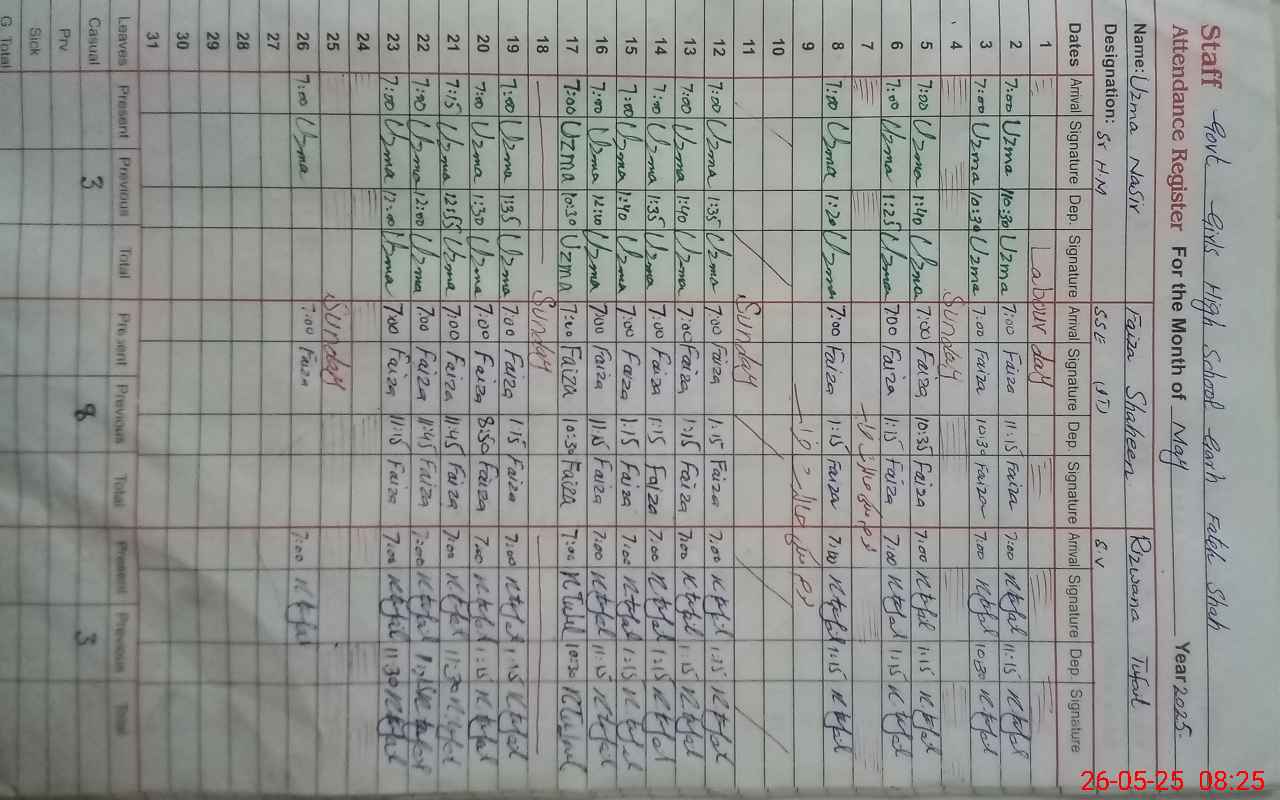 Staff Govt Girls High School Garh Fateh Shah
Attendance Register For the Month of May Year 2025
Name: Uzma Nasir Faiza Shaheen Rizwana Tufail
Designation: Sr H.M SSE (IT)
Dates Arrival Signature Dep. Signature Arrival Signature Dep. Signature Arrival Signature Dep. Signature
1 Labour day
2 7:00 Uzma 10:30 Uzma 7:00 Faiza 11:15 Faiza 7:00 11:15
3 7:00 Uzma 10:30 Uzma 7:00 Faiza 10:30 Faiza 7:00 10:30
4 Sunday
5 7:00 Uzma 1:40 Uzma 7:00 Faiza 10:35 Faiza 7:00 1:15
6 7:00 Uzma 1:25 Uzma 7:00 Faiza 1:15 Faiza 7:00 1:15
7
8 7:00 Uzma 1:20 Uzma 7:00 Faiza 1:15 Faiza 7:00 1:15
9
10
11 Sunday
12 7:00 Uzma 1:35 Uzma 7:00 Faiza 1:15 Faiza 7:00 1:15
13 7:00 Uzma 1:40 Uzma 7:00 Faiza 1:15 Faiza 7:00 1:15
14 7:00 Uzma 1:35 Uzma 7:00 Faiza 1:15 Faiza 7:00 1:15
15 7:00 Uzma 1:40 Uzma 7:00 Faiza 1:15 Faiza 7:00 1:15
16 7:00 Uzma 12:10 Uzma 7:00 Faiza 11:15 Faiza 7:00 11:15
17 7:00 Uzma 10:30 Uzma 7:00 Faiza 10:30 Faiza 7:00 10:30
18 Sunday
19 7:00 Uzma 1:35 Uzma 7:00 Faiza 1:15 Faiza 7:00 1:15
20 7:00 Uzma 1:30 Uzma 7:00 Faiza 8:50 Faiza 7:00 1:15
21 7:15 Uzma 12:55 Uzma 7:00 Faiza 11:45 Faiza 7:00 11:30
22 7:00 Uzma 12:00 Uzma 7:00 Faiza 11:45 Faiza 7:00
23 7:00 Uzma 12:00 Uzma 7:00 Faiza 11:15 Faiza 7:00 11:30
24
25 Sunday
26 7:00 Uzma 7:00 Faiza 7:00
27
28
29
30
31
Leaves Present Previous Total Present Previous Total Present Previous Total
Casual 3 8 3
Prv
Sick
G. Total
26-05-25 08:25